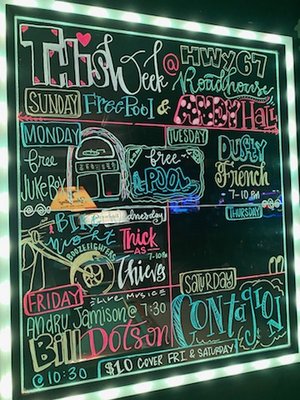 THis Week @ HWY 67
Roadhouse
SUNDAY Free Pool & ANDY Hall
MONDAY
free
JukeBox
TUESDAY
free
POOL
Dusty
French
7-10 PM
Bike
Night
Wednesday
BOOZEFIGHTERS
Thick
AS
Thieves
7-10 PM
THURSDAY
FRIDAY
Live Music
Andru Jamison @ 7:30
Bill Dotson
@ 10:30
SATURDAY
Contagion
$10 COVER FRI & SATURDAY